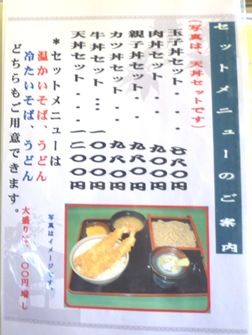 セットメニューのご案内
(写真は、天丼セットです)
玉子丼セット・・七八〇円
肉丼セット・・・九〇〇円
親子丼セット・・九〇〇円
カツ丼セット・・九八〇円
牛丼セット・・・一〇〇〇円
天丼セット・・・一二〇〇円
*セットメニューは
温かいそば、うどん
冷たいそば、うどん
どちらもご用意できます。
大盛りは、 〇〇円増し
写真はイメージです。